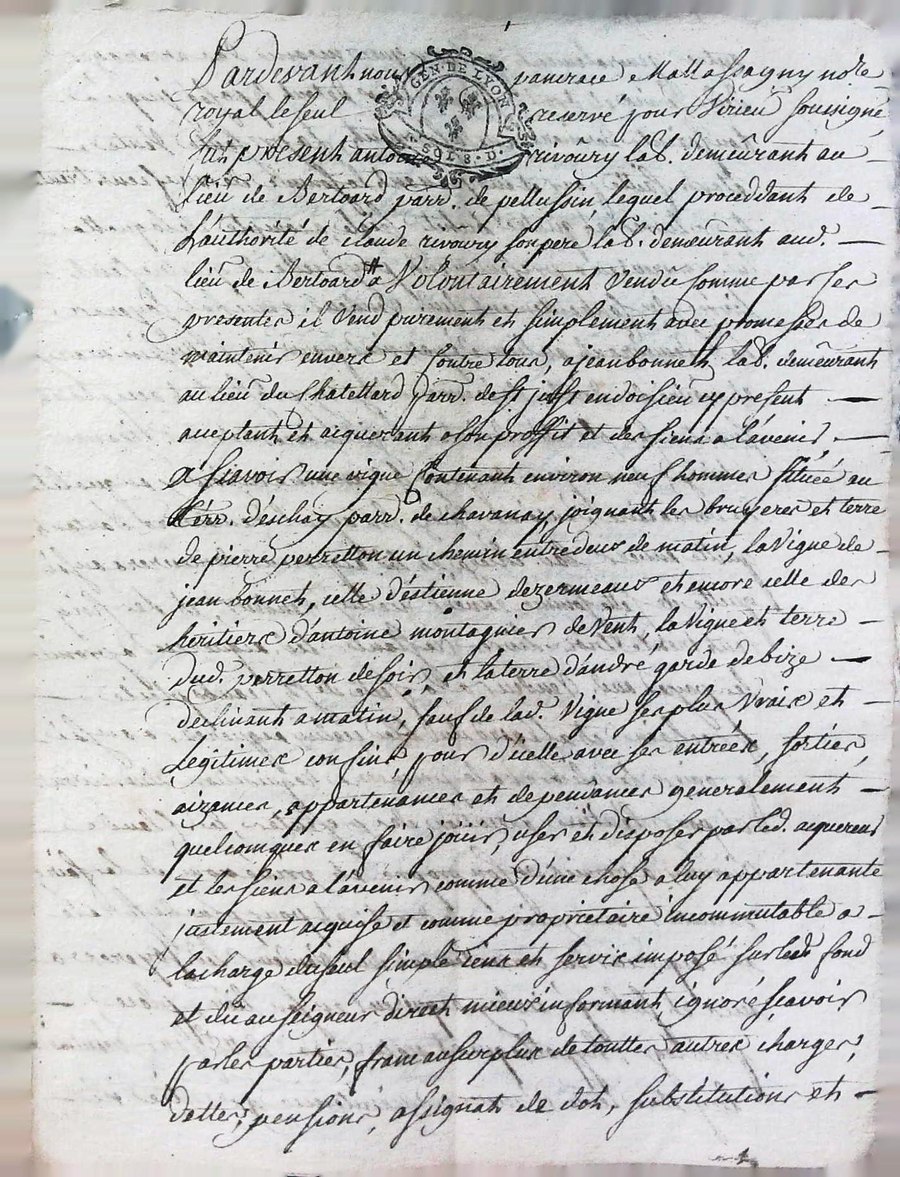 GEN. DE LYON
SOLS. D.
Pardevant nous pancrace Mattassagny no.re
royal le seul reservé pour Virieu soussigné
fut present antoine rivoiry lab. demeurant au
lieu de Bertoard parr. de pellussin, lequel proceddant de
L'authorité de claude rivoiry son pere lab. demeurant aud.
lieu de Bertoard a Volontairement Vendu comme par ses
presentes il Vend purement et simplement avec promesse de
maintenir envers et contre tous, a jean bonneth lab. demeurant
au lieu du Chatellard parr. de st just en doisieu cy present
acceptant et acquerant a son proffit et des siens a l'avenir,
A sçavoir une vigne Contenant environ neuf hommes Située au
terr. d'eschay parr. de chavanay, joignant les bruyeres et terre
de pierre perretton un chemin entredeux de matin, la Vigne de
jean bonneth, celle d'estienne dezermeaux et encore celle des
heritiers d'antoine montagnier de Vent, la Vigne et terre
dud. perretton de soir, et la terre d'andré garde de bize
declinant a matin, sauf de lad. Vigne ses plus Vrais et
Legitimes confins, pour d'icelle avec ses entrées, sorties,
aizances, appartenances et dependances generalement
quelconques en faire jouir, user et disposer par led. acquereur
et les siens a l'avenir comme d'une chose a luy appartenante
justement acquise et comme proprietaire incommutable a
la charge du seul simple cens et servis imposé sur led. fond
et du au seigneur direct mieux informant, ignoré sçavoir
par les parties, franc au surplus de touttes autres charges,
dettes, pensions, assignat de dot, substitutions et